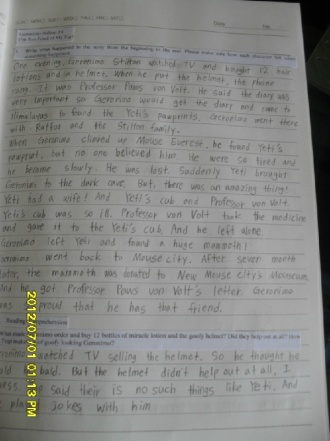 Date
No.
Geronimo Stilton #4
I'm Too Fond of My Fur!
1. Write what happened in the story from the beginning to the end. Please make sure how each character felt when something happened.
One evening, Geronimo Stilton watched TV and bought 12 hair
lotions and a helmet. When he put the helmet, the phone
rang. It was Professor Paws von Volt. He said the diary was
very important so Geronimo would get the diary and came to
Himalayas to found the Yeti's pawprints. Geronimo went there
with Rattus and the Stilton family.
When Geronimo climed up Mouse Everest, he found Yeti's
pawprint, but no one believed him. He were so tired and
he become slowly. He was lost. Suddenly Yeti brought
Geronimo to the dark cave. That, there was an amazing thing!
Yeti had a wife! And Yeti's cub and Professor von Volt.
Yeti's cub was so ill. Professor von Volt took the medicine
and gave it to the Yeti's cub. And he left alone
Geronimo left Yeti and found a huge mammoth!
went back to Mouse city. After seven month
later, the mammoth was donated to New Mouse City's Mouseum
And he got Professor Paws von Volt's letter. Geronimo
was proud that he has that friend.
Reading Comprehension
and buy 12 bottles of miracle lotion and the goofy helmet? Did they help
of goofy looking Geronimo?
watched TV selling the helmet. So he thought he
bald. But the helmet didn't help out at all, I
said their is no such things like Yeti. And
jokes with him
2012/07/01 01:13 PM